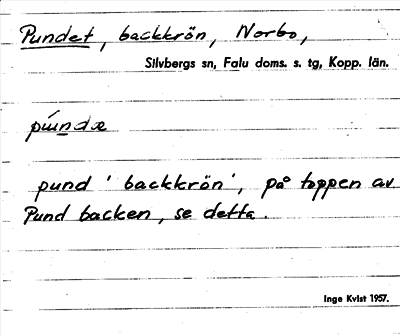 Pundet, backkrön, Norbo,
Silvbergs sn, Falu doms. s. tg, Kopp. län.
pṹndæ
pund 'backkrön', på toppen av
Pund backen, se detta.
Inge Kvist 1957.